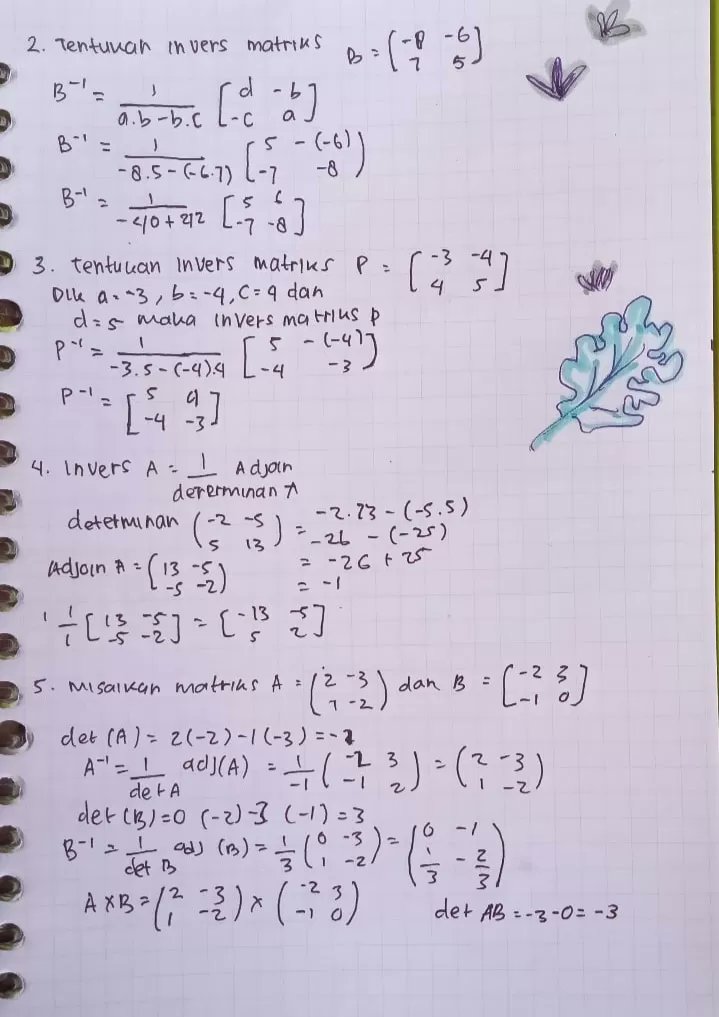 2. Tentukan invers matriks B = (-8 -6 / 7 5)
B⁻¹ = 1 / a.b-b.c [d -b / -c a]
B⁻¹ = 1 / -8.5-(-6.7) [5 -(-6) / -7 -8]
B⁻¹ = 1 / -40+42 [5 6 / -7 -8]
3. Tentukan invers matriks P = [-3 -4 / 4 5]
Dik a = -3, b = -4, C = 4 dan
d = 5 maka invers matriks P
P⁻¹ = 1 / -3.5-(-4).4 [5 -(-4) / -4 -3]
P⁻¹ = [5 4 / -4 -3]
4. Invers A = 1 / determinan A Adjoin
determinan (-2 -5 / 5 13) = -2.13-(-5.5)
= -26 - (-25)
Adjoin A = (13 -5 / -5 -2) = -26 + 25
= -1
1/1 [13 -5 / -5 -2] = [-13 -5 / 5 2]
5. Misalkan matriks A = (2 -3 / 1 -2) dan B = [-2 3 / -1 0]
det (A) = 2(-2)-1(-3) = -1
A⁻¹ = 1 / det A adj(A) = 1/-1 (-2 3 / -1 2) = (2 -3 / 1 -2)
det (B) = 0 (-2)-3 (-1) = 3
B⁻¹ = 1 / det B adj (B) = 1/3 (0 -3 / 1 -2) = (0 -1 / 1/3 -2/3)
A x B = (2 -3 / 1 -2) x (-2 3 / -1 0) det AB = -3-0 = -3